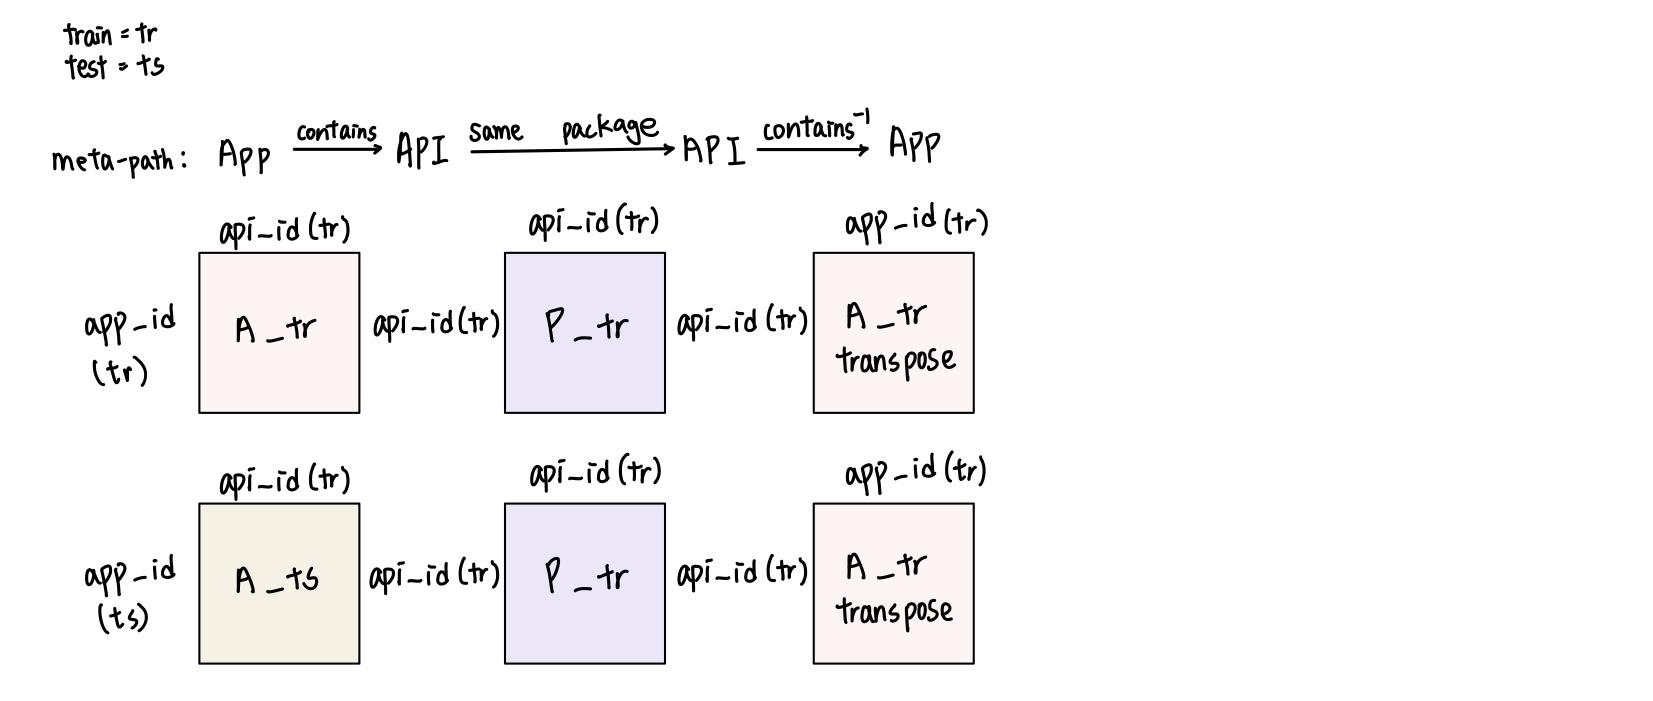 train = tr
test = ts
meta-path: App contains API same package API contains⁻¹ App
api_id (tr) api_id (tr) app_id (tr)
app_id (tr) A_tr api_id (tr) P_tr api_id (tr) A_tr transpose
api_id (tr) api_id (tr) app_id (tr)
app_id (ts) A_ts api_id (tr) P_tr api_id (tr) A_tr transpose